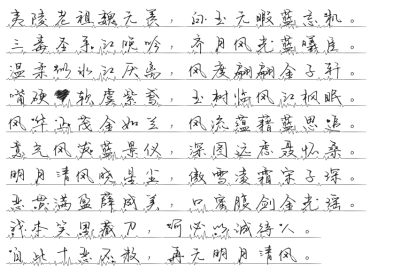 夷陵老祖魏无羡，白玉无暇蓝忘机。
三毒圣手江晚吟，齐月风光蓝曦臣。
温柔似水江厌离，风度翩翩金子轩。
嘴硬心软虞紫鸢，玉树临风江枫眠。
风华正茂金如兰，风流蕴藉蓝思追。
意气风发蓝景仪，深图远虑聂怀桑。
明月清风晓星尘，傲雪凌霜宋子琛。
恶贯满盈薛成美，口蜜腹剑金光瑶。
我本笑里藏刀，何必以诚待人。
自此十恶不赦，再无明月清风。